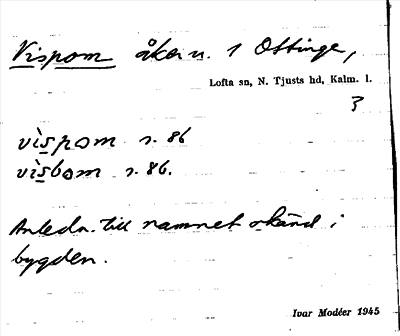 Vispom åker n. 1 Ottinge,
Lofta sn, N. Tjusts hd, Kalm. l.
3
vispom s. 86
visbom s. 86.
Anledn. till namnet okänd i
bygden.
Ivar Modéer 1945